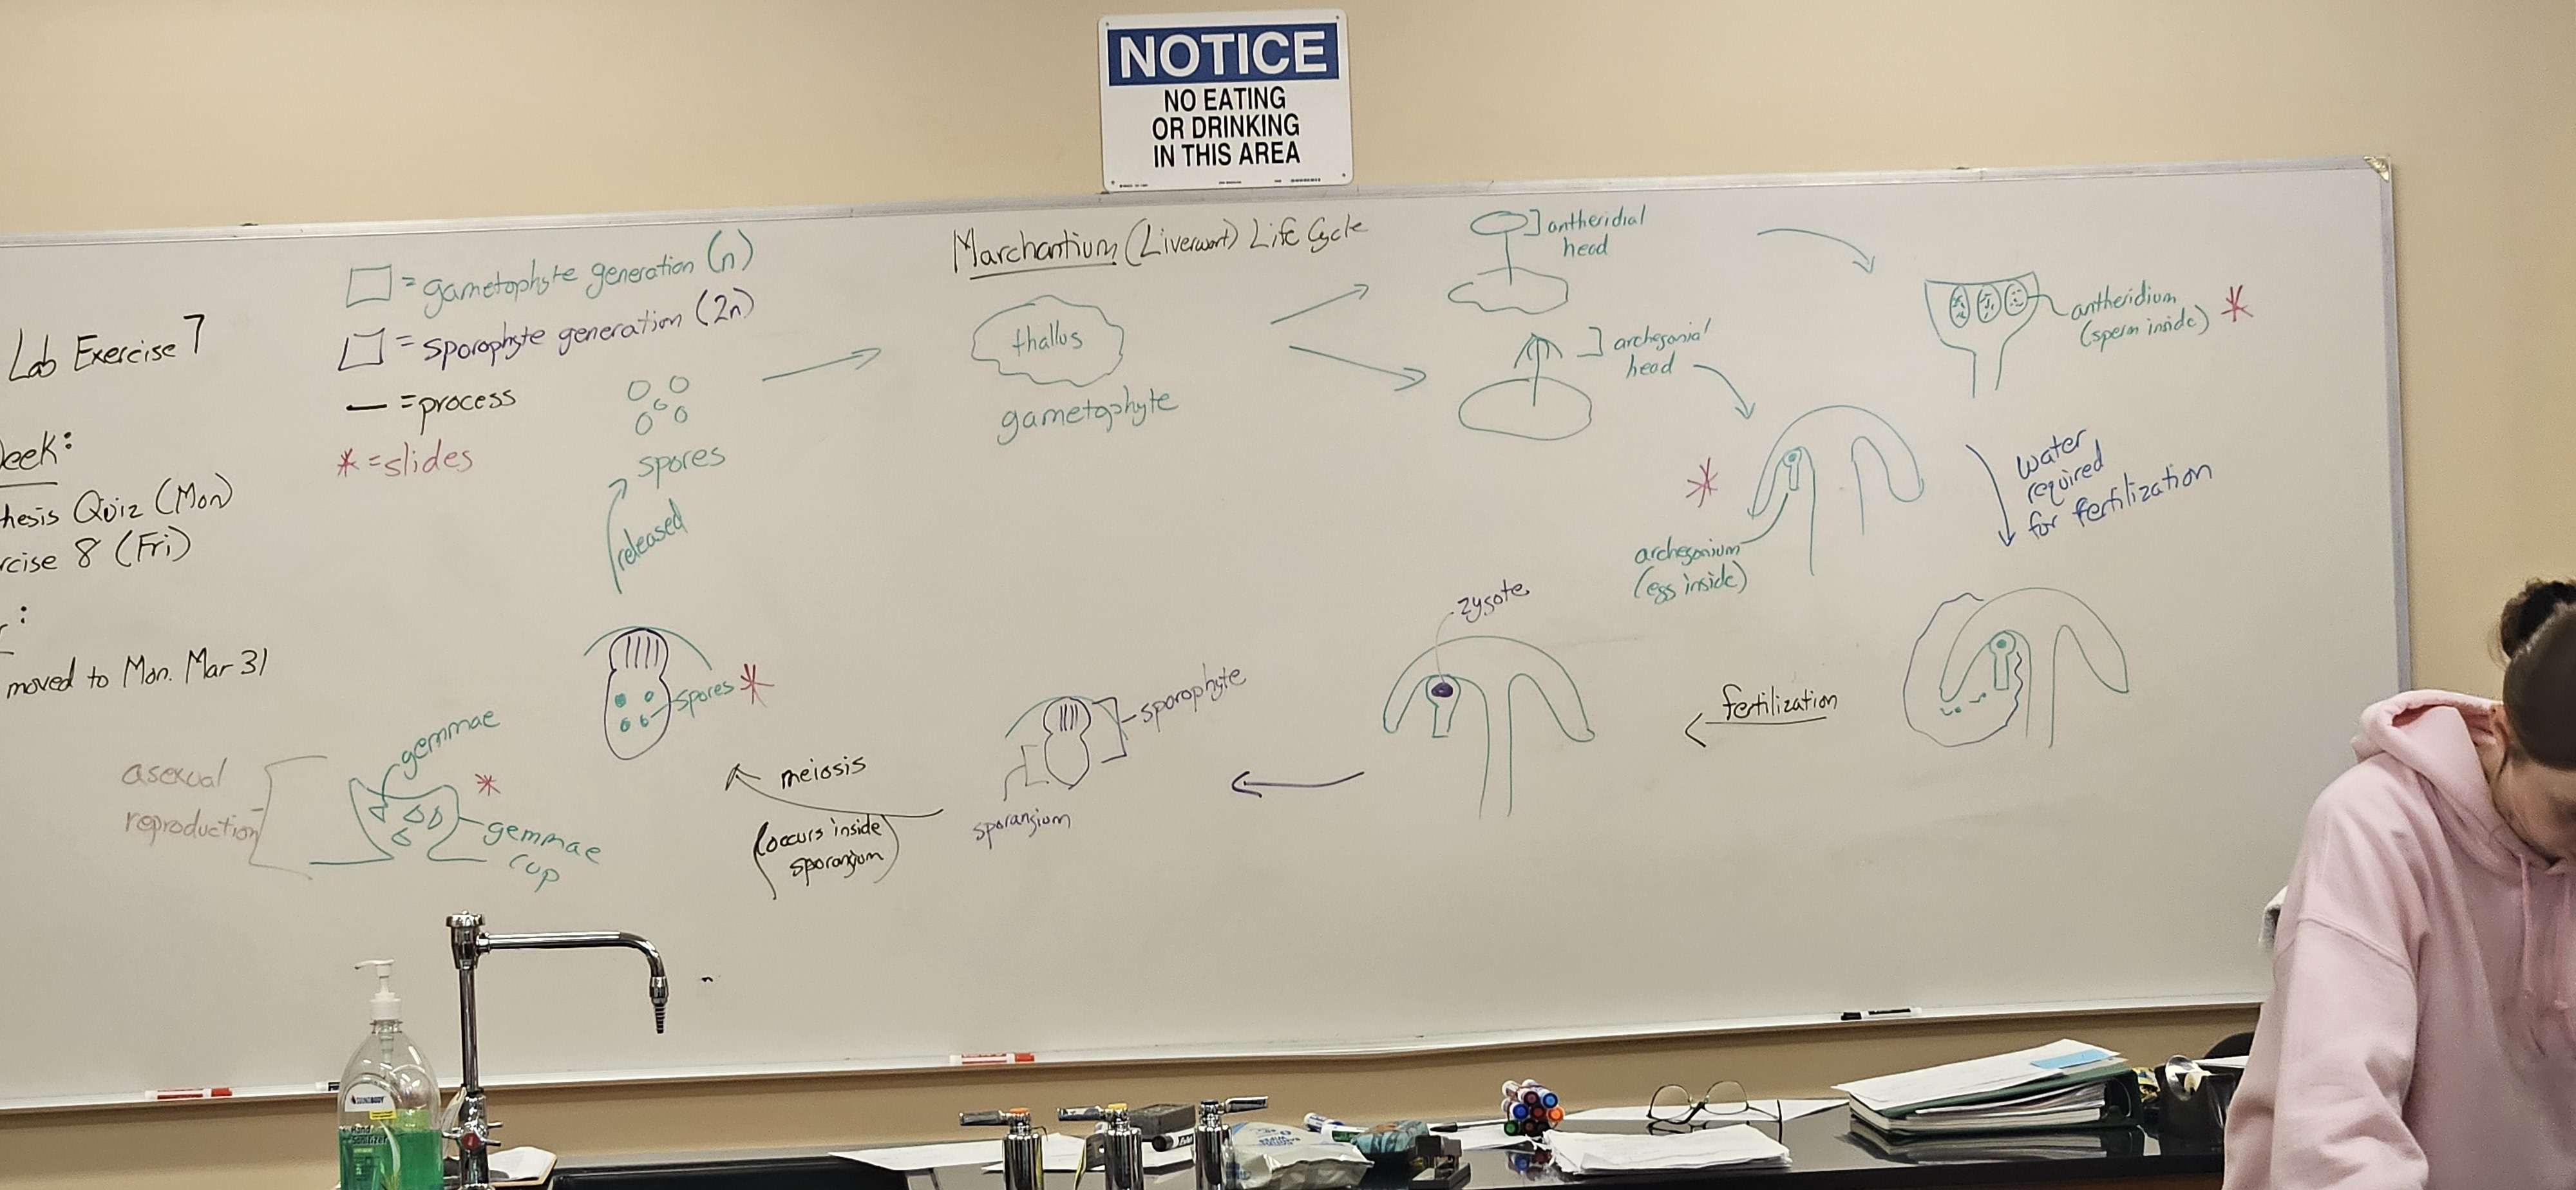 NOTICE
NO EATING
OR DRINKING
IN THIS AREA
Lab Exercise 7
eek:
hesis Quiz (Mon)
rcise 8 (Fri)
:
moved to Mon. Mar 31
= gametophyte generation (n)
= sporophyte generation (2n)
= process
* = slides
Marchantium (Liverwort) Life Cycle
spores
released
thallus
gametophyte
antheridial
head
archegonial
head
antheridium
(sperm inside) *
*
archegonium
(egg inside)
water
required
for fertilization
fertilization
zygote
sporophyte
sporangium
meiosis
(occurs inside
sporangium)
spores *
asexual
reproduction
gemmae
*
gemmae
cup
Hand
Sanitizer